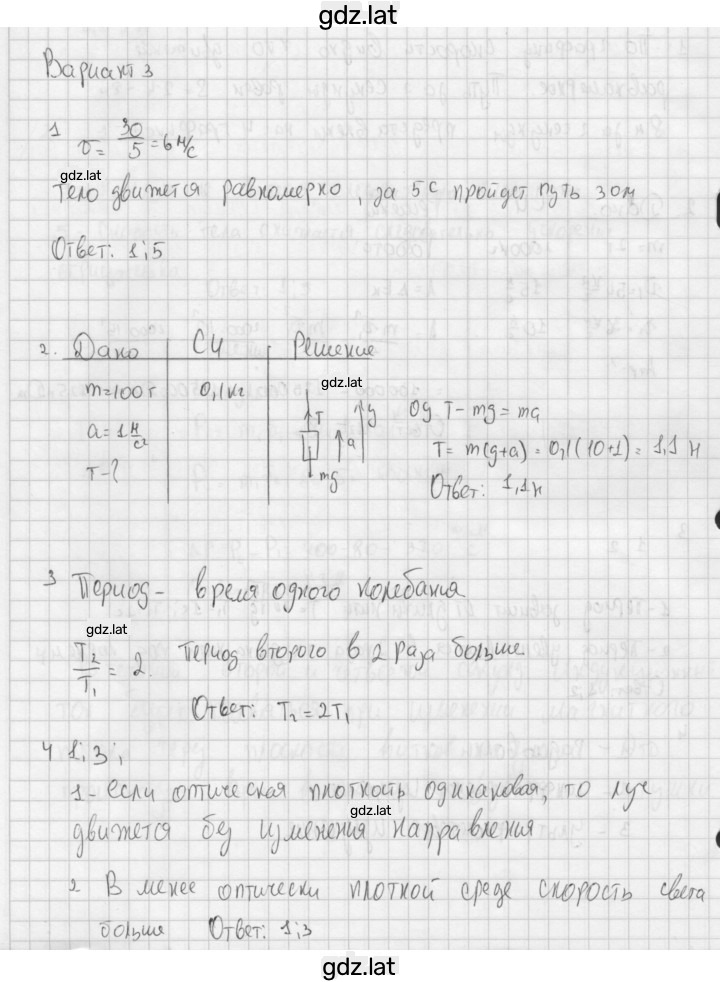 gdz.lat
Вариант 3
1 υ = 30/5 = 6 м/с
gdz.lat
тело движется равномерно, за 5с пройдет путь 30м
Ответ: 1;5
2. Дано СИ Решение
gdz.lat
m=100г 0,1кг
a=1 м/с²
T-?
T
y
a
mg
Oy T-mg=ma
T= m(g+a) = 0,1(10+1) = 1,1 Н
Ответ: 1,1н
3 Период - время одного колебания
gdz.lat
T₂/T₁ = 2. Период второго в 2 раза больше
Ответ: T₂=2T₁
4 1;3;
1- если оптическая плотность одинаковая, то луч
gdz.lat
движется без изменения направления
2 В менее оптически плотной среде скорость света
больше Ответ: 1;3
gdz.lat